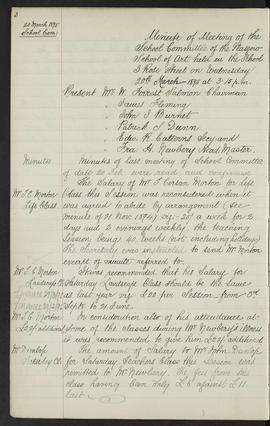 3
20 March 1895
School Com)
Minute of Meeting of the
School Committee of the Glasgow
School of Art held in the School
3 Rose Street on Wednesday
20th March 1895 at 3.15 p.m.
Present Mr W. Forrest Salmon Chairman
" James Fleming
" John J Burnet
" Patrick S Dunn
" Edw. R Catterns Secy and
" Fra H. Newbery Head Master.
Minutes
Minutes of last meeting of School Committee
of date 20 Feb were read and confirmed
Mr T.C. Morton
Life Class.
The Salary of Mr T Corsan Morton for Life
Class this Session was reconsidered when it was
agreed to abide by arrangement (see
minute of 21 Nov 1894) viz 20/ a week for 2
days and 2 evenings weekly, the teaching
Session being 40 weeks (not including holidays)
The Secretary was instructed to send Mr Morton
excerpt of minute referred to.
Mr T C Morton
Landscape Cl
It was recommended that his Salary for
Saturday Landscape Class should be the same
as last year viz £20 per Session from
Sept to 21 June.
Mr T.C. Morton
£5 of additional
On consideration also of his attendance at
some of the classes during Mr Newbery's illness
it was recommended to give him £5 of additional
Mr Dunlop
The amount of Salary to Mr John Dunlop
for Saturday Teachers Class this Session was
remitted to Mr Newbery. The fees from this
class having been only £6 against £11
last.